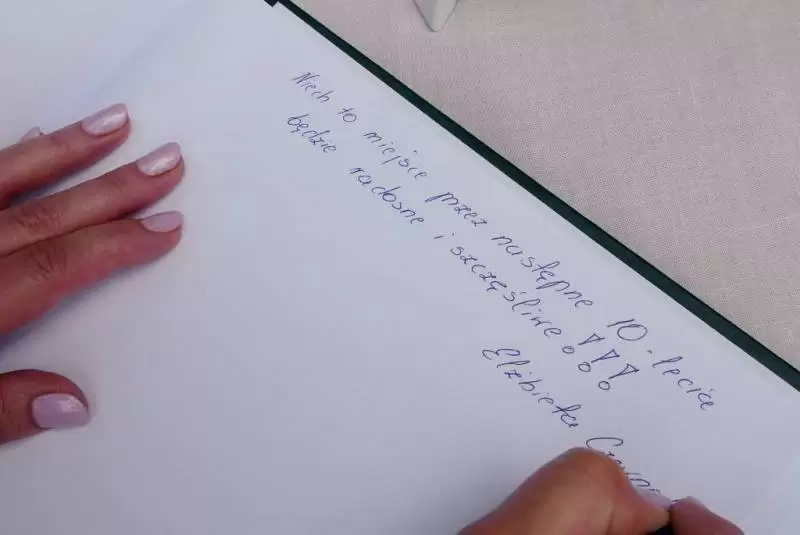 Niech to miejsce przez następne 10-lecie
będzie radosne i szczęśliwe!!!
Elżbieta